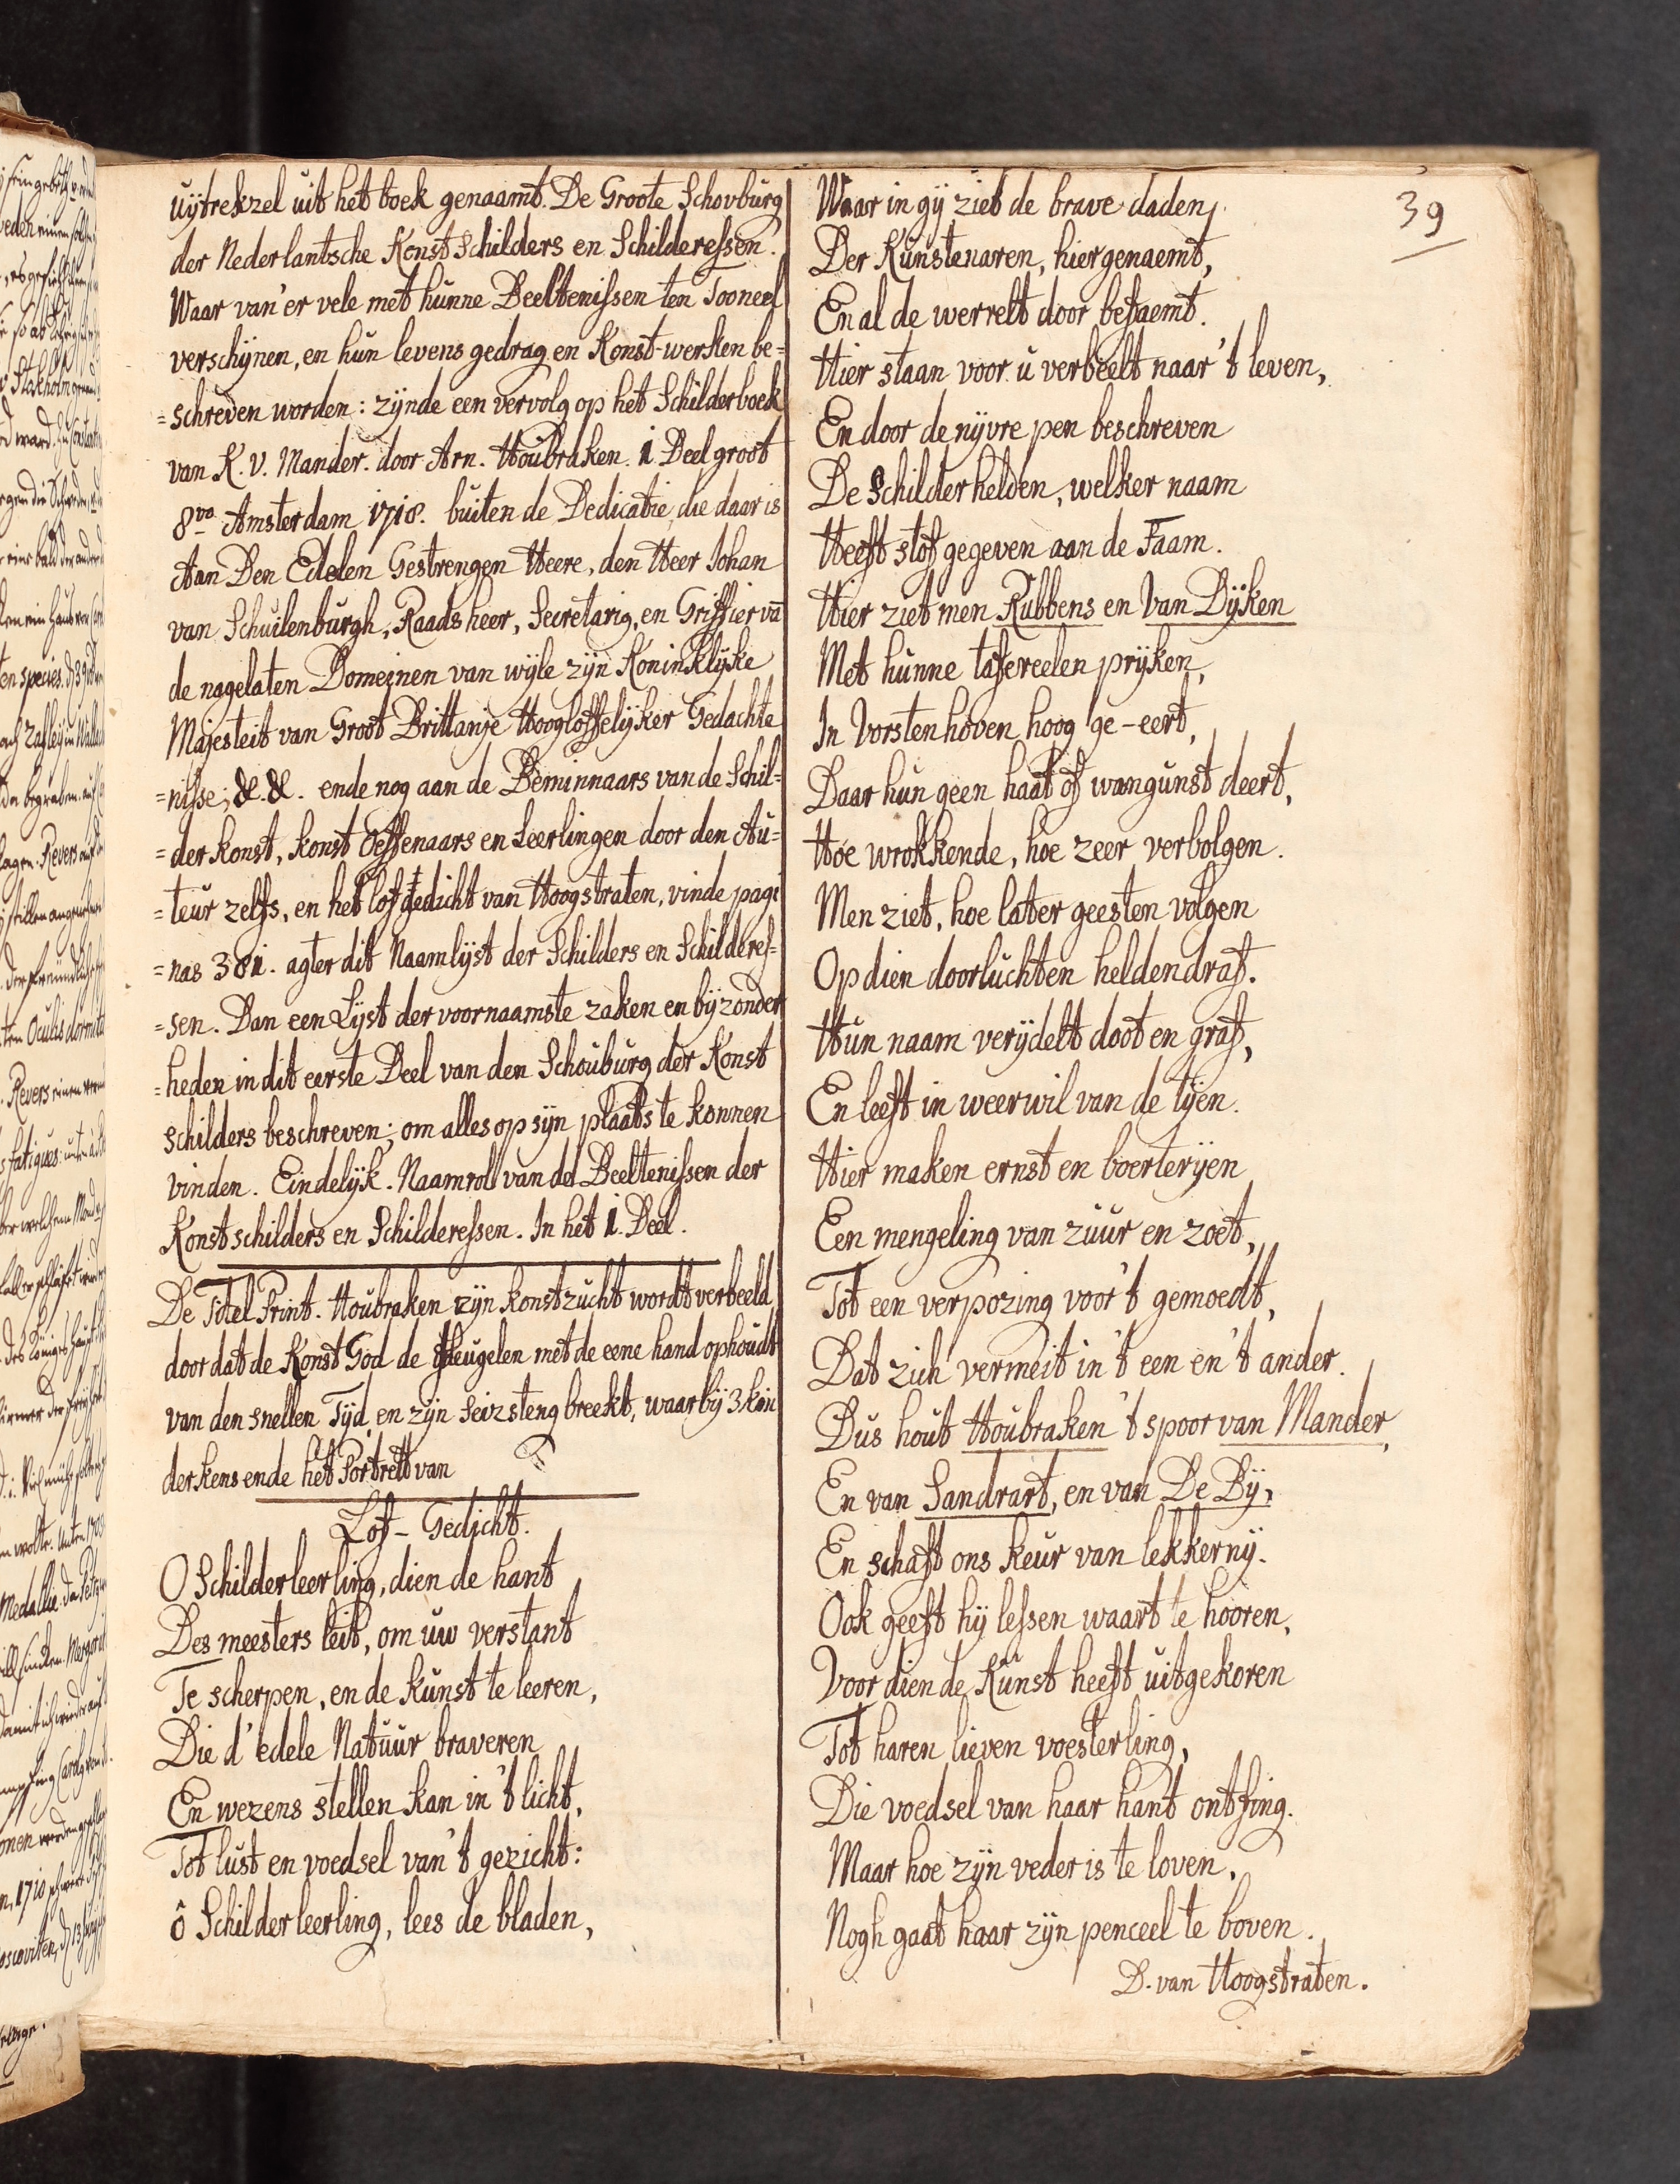 uÿtrekzel uit het boek genaamt. De Groote Schovburg
der Nederlantsche Konst Schilders en Schilderessen.
Waar van 'er vele met hunne Beeltenissen ten Tooneel
verschÿnen, en hun levens gedrag en Konst-werken be=
=schreven worden: zÿnde een vervolg op het Schilderboek
van K. V. Mander. door Arn. Houbraken. 1. Deel groot
8vo Amsterdam 1718. buiten de Dedicatie, die daar is
Aan Den Edelen Gestrengen Heere, den Heer Johan
van Schuilenburgh, Raadsheer, Secretarig, en Griffier vā
de nagelaten Domeinen van wÿle zÿn Koninklÿke
Majesteit van Groot Brittanje Hoogloffelÿker Gedachte
=nisse, &. &. ende nog aan de Beminnaars van de Schil=
=der konst, konst Oeffenaars en Leerlingen door den Au=
=teur zelfs, en het lof gedicht van Hoogstraten, vinde pagi
=nas 381. agter dit Naamlÿst der Schilders en Schilderes=
=sen. Dan een Lÿst der voornaamste zaken en bÿzonder
=heden in dit eerste Deel van den Schouburg der Konst
schilders beschreven; om alles op sÿn plaats te konnen
vinden. Eindelÿk. Naamroll van de Beeltenissen der
Konstschilders en Schilderessen. In het 1. Deel.
De Titel Print. Houbraken zÿn konstzucht wordt verbeeld
door dat de Konst God de theugelen met de eene hand ophoudt
van den snellen Tÿd, en zÿn seizsteng breekt, waar bÿ 3 kin
derkens ende het Portrett van
Lof-Gedicht.
O Schilderleerling, dien de hant
Des meesters leit, om uw verstant
Te scherpen, en de kunst te leeren,
Die d'edele Natuur braveren
En wezens stellen kan in 't licht,
Tot lust en voedsel van 't gezicht:
ô Schilderleerling, lees de bladen,
39
Waar in gÿ ziet de brave daden
Der Kunstenaren, hier genaemt,
En al de werrelt door befaemt.
Hier staan voor u verbeelt naar 't leven,
En door de nÿvre pen beschreven
De Schilderhelden, welker naam
Heeft stof gegeven aan de Faam.
Hier ziet men Rubbens en Van Dÿken
Met hunne tafereelen prÿken,
In Vorstenhoven hoog ge-eert,
Daar hun geen haat of wangunst deert,
Hoe wrokkende, hoe zeer verbolgen.
Men ziet, hoe later geesten volgen
Op dien doorluchten heldendraf.
Hun naam verÿdelt doot en graf,
En leeft in weerwil van de tÿen.
Hier maken ernst en boerterÿen
Een mengeling van zuur en zoet,
Tot een verpozing voor 't gemoedt,
Dat zich vermeit in 't een en 't ander.
Dus hout Houbraken 't spoor van Mander,
En van Sandrart, en van De Bÿ,
En schaft ons keur van lekkernÿ.
Ook geeft hÿ lessen waart te hooren,
Voor dien de Kunst heeft uitgekoren
Tot haren lieven voesterling,
Die voedsel van haar hant ontfing.
Maar hoe zÿn veder is te loven,
Nogh gaat haar zÿn penceel te boven.
D. van Hoogstraten.